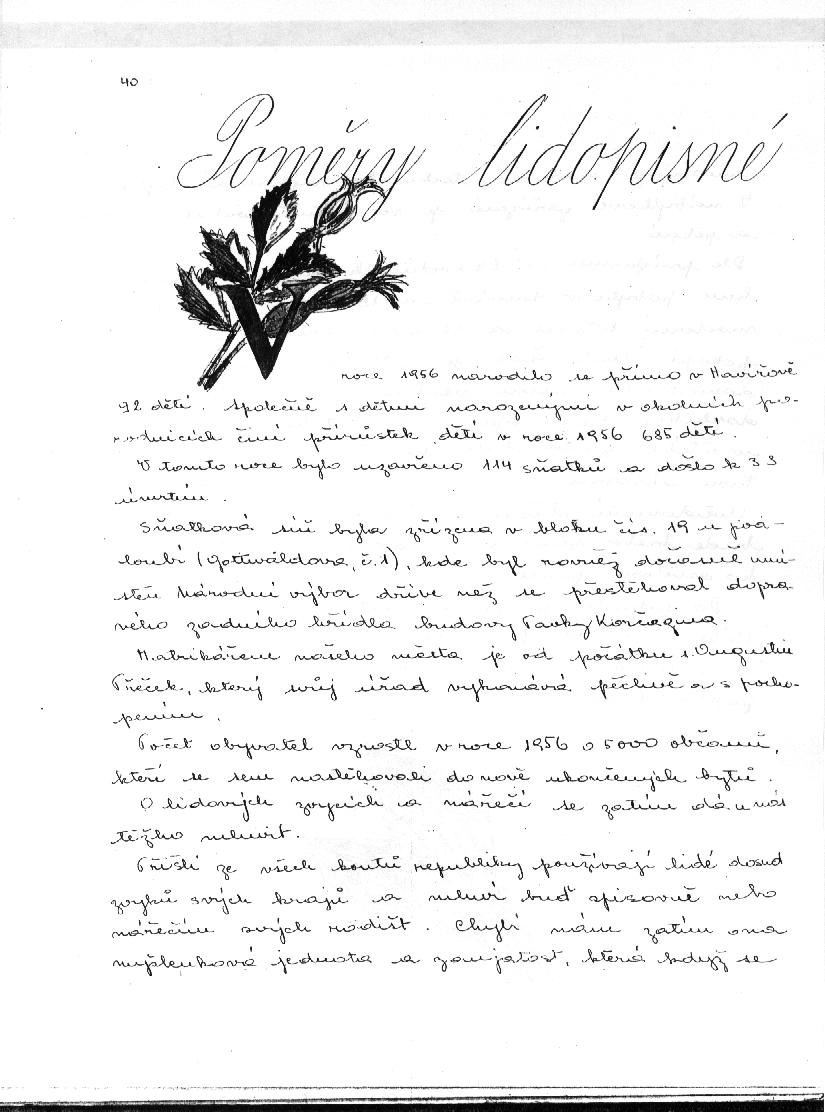 40
Poměry lidopisné
V roce 1956 narodilo se přímo v Havířově
92 dětí. Společně s dětmi narozenými v okolních po-
rodnicích činí přírůstek dětí v roce 1956 685 dětí.
V tomto roce bylo uzavřeno 114 sňatků a došlo k 33
úmrtím.
Sňatková síň byla zřízena v bloku čís. 19 u pod-
loubí (Gottwaldova, č. 1), kde byl rovněž dočasně umí-
stěn Národní výbor dříve než se přestěhoval do pra-
vého zadního křídla budovy Pavky Korčagina.
Matrikářem našeho města je od počátku s. Augustin
PTéček, který svůj úřad vykonává pečlivě a s pocho-
pením.
Počet obyvatel vzrostl v roce 1956 o 5000 občanů,
kteří se sem nastěhovali do nově ukončených bytů.
O lidových zvycích a nářečí se zatím dá u nás
těžko mluvit.
Přišli ze všech koutů republiky používají lidé dosud
zvyků svých krajů a mluví buď spisovně nebo
nářečím svých rodišť. Chybí nám zatím ona
myšlenková jednota a zanjatost, která když se